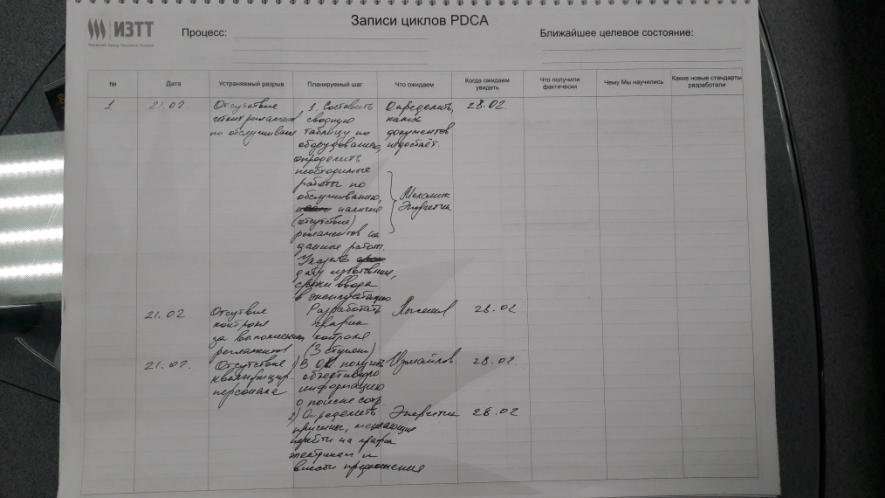 ИЗТТ
Записи циклов PDCA
Процесс:
Ближайшее целевое состояние:
№
Дата
Устраняемый разрыв
Планируемый шаг
Что ожидаем
Когда ожидаем
увидеть
Что получили
фактически
Чему Мы научились
Какие новые стандарты
разработали
1
21.02
Отсутствие
регламентов
по обслуживан
1. Составить
сводную
таблицу по
оборудованию,
определить
необходимые
работы по
обслуживанию,
наличие
(отсутствие)
регламентов на
данные работ.
Указать
дату изготовления,
сроки ввода
в эксплуатацию
Определить,
каких
документов
недостаёт.
Механик
Энергетик
28.02.
21.02
Отсутвие
контроля
за выполнением
регламентов
Разработать
график
контроля
(3 ступени)
28.02
21.02.
Отсутствие
квалифицир.
персонала
1) В ОК получить
объективную
информацию
о поиске сотр
Измайлов
28.02
2) Определить
причины, мешающие
на
электрикам и
внести предложения
Энергетик
28.02